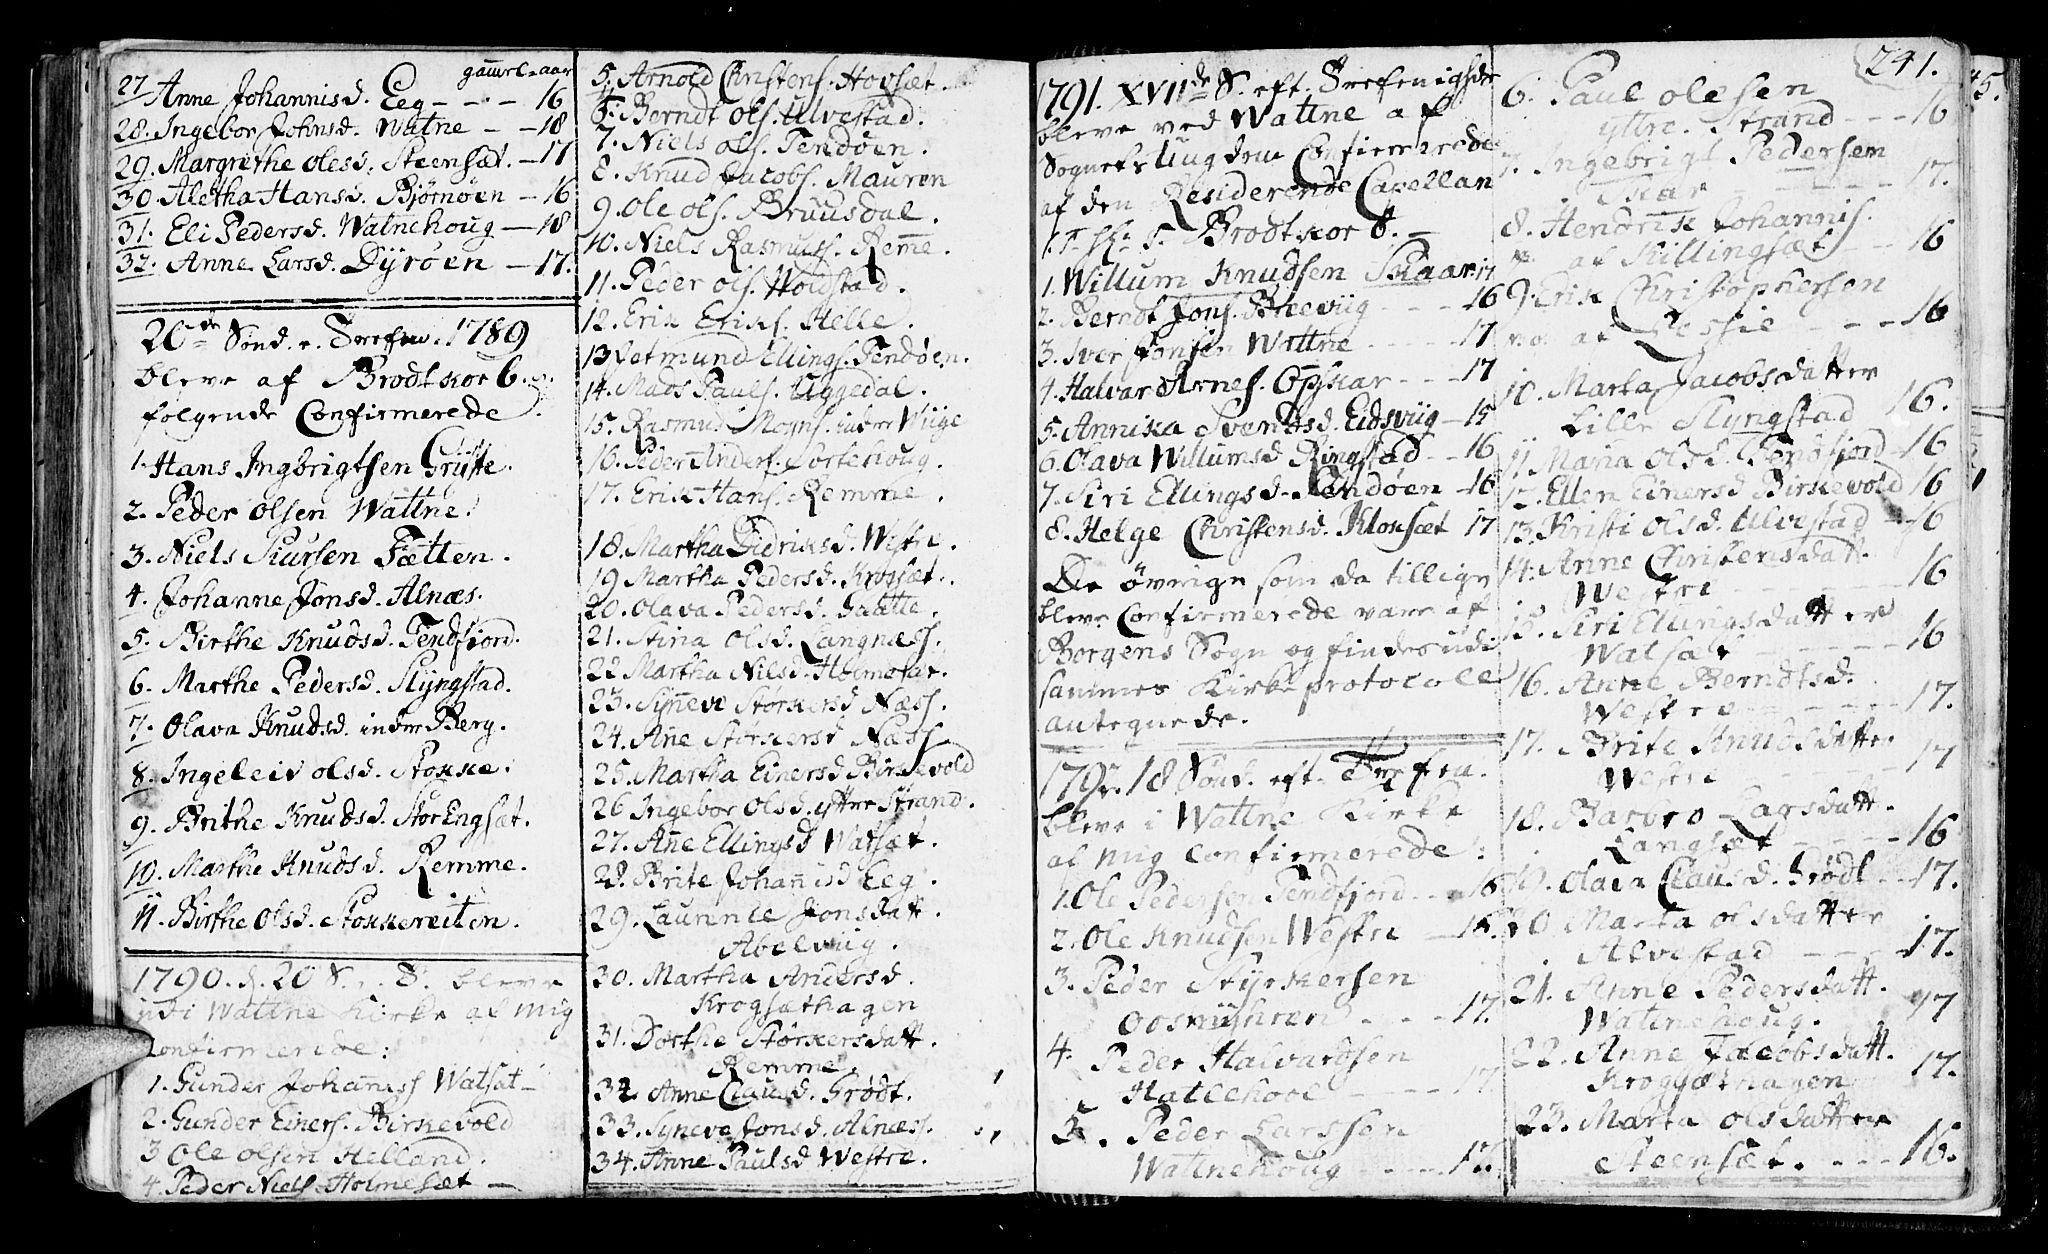 gaml. aar
27 Anne Johannisd. Eeg - - - 16
28. Ingebor Johnsd. Watne - - 18
29. Margrethe olesd. Steensæt. - 17
30. Aletha Hansd. Bjørnøen - 16
31. Eli Pedersd. Watnehoug - 18
32. Anne Larsd. Dyrøen - 17.
20de Sønd. e. Trefen. 1789
bleve af Brodtkorb
følgende Confirmerede
1. Hans Ingbrigtsen Grytte.
2. Peder olsen Wattne.
3. Niels Siursen Tætten.
4. Johanne Jonsd. Alnæs.
5. Birthe Knudsd. Tendfjord.
6. Marthe Pedersd. Slyngstad.
7. Olava Knudsd. inder Berg.
8. Ingeleiv olsd. Stokke.
9. Brithe Knudsd. StorEngsæt.
10. Marthe Knudsd. Remme.
11. Birthe Olsd. Stokkereiten.
1790. d. 20 S. e. T. bleve
udi Wattne Kirke af mig
Confirmerede:
1. Gunder Johaniss Watsæt -
2. Gunder Einers. Birkevold
3 Ole olsen Helland.
4. Peder Niels. Holmesæt -
5. Arnold Christens. Hovsæt.
6. Berndt ols. Ulvestad.
7. Niels ols. Tendøen.
8. Knud Jacobs. Mauren
9. Ole ols. Bruusdal.
10. Niels Rasmuss. Reme.
11. Peder ols. Hoidstad.
12. Erik Eriks. Helle.
13 Jetmund Ellings. Tendøen.
14. Mads Pauls. Uggedal.
15. Rasmus Mogns. inder Wiige
16. Peder Anders. Tortehoug.
17. Erik Hans. Remme.
18. Martha Didriksd. Westre.
19 Martha Pedersd. Krogsæt.
20. Olava Pedersd. Grøtte.
21. Stina olsd. Langnæss.
22 Martha Nilsd. Holmesæt.
23. Synneve Størkersd Næss.
24. Ane Størkersd Næss
25. Martha Einersd Birkevold
26 Ingebor Olsd. yttre Strand.
27. Ane Ellingsd Watsæt.
28. Brite Johanisd Eeg.
29. Laurence Jonsdatt.
Abelviig.
30. Martha Andersd.
Krogsæthagen
31. Dorthe Størkersdatt.
Remme
32. Anne Clausd. Grødt.
33. Syneve Jonsd. Alnæss.
34. Anne Paulsd Westre.
241.
1791. XVIIde S. eft. Trefenighde
bleve ved Wattne af
Sognets Ungdom Confirmerede
af den Residerende Capellan
Brodtkorb. -
1. Willum Knudsen Skaar 17
2. Berndt Jons. Breviig - - - 16
3. Iver Jonsen Wattne - - - 17
4. Halvar Arnes. Opskar - - - 17
5. Annika Svendsd. Eidsviig - 15
6. Olava Willumsd Ringstad - - 16
7. Siri Ellingsd. Tendøen - 16
8. Helge Christensd. Kloksæt 17
De øvrige som da tillige
bleve Confirmerede vare af
Borgens Sogn og findes udi
sammes Kirke protocoll
antegnede.
1792. 18 Sønd. eft. Trefen.
bleve i Wattne Kirke
af mig Confirmerede:
1. Ole Pedersen Tendfjord - - 16
2. Ole Knudsen Westre - 15.
3. Peder Styrkersen
Oosnyhren - - - 17.
4. Peder Halvardsen
Hatlehool - - - 17.
5. Peder Larssen
Watnehoug - - - 17.
6. Paul olesen
yttre. Strand - - - 16
7. Ingebrigt Pedersen
Skar - - - 17.
8. Hendrik Johannis.
af Killingsæt - - 16
9. Erik Christophersen
af Lessie - - - 16
10. Marta Jacobsdatter
Lille Slyngstad 16.
11 Maria olsd. Tendfjord - 16
12. Ellen Einersd Birkevold 16
13. Kristi olsd. Ulvestad - 16
14. Anne Christensdatt.
Westre - - - 16
15. Siri Ellingsdatter
Watsæt - - - 16
16. Anne Berndtsd.
Westre - - - 17.
17. Brite Knudsdatter
Westre - - - 17
18. Barbro Larsdatt.
Langsæt - - - 16
19. Olava Clausd. Grødt - 17.
20. Marta olsdatter
Alvestad - - - 17.
21. Anne Pedersdatt.
Watnehoug. 17
22. Anne Jacobsdatt.
Krogsæthagen 17.
23. Marta olsdatter
Steensæt. - - - 16.